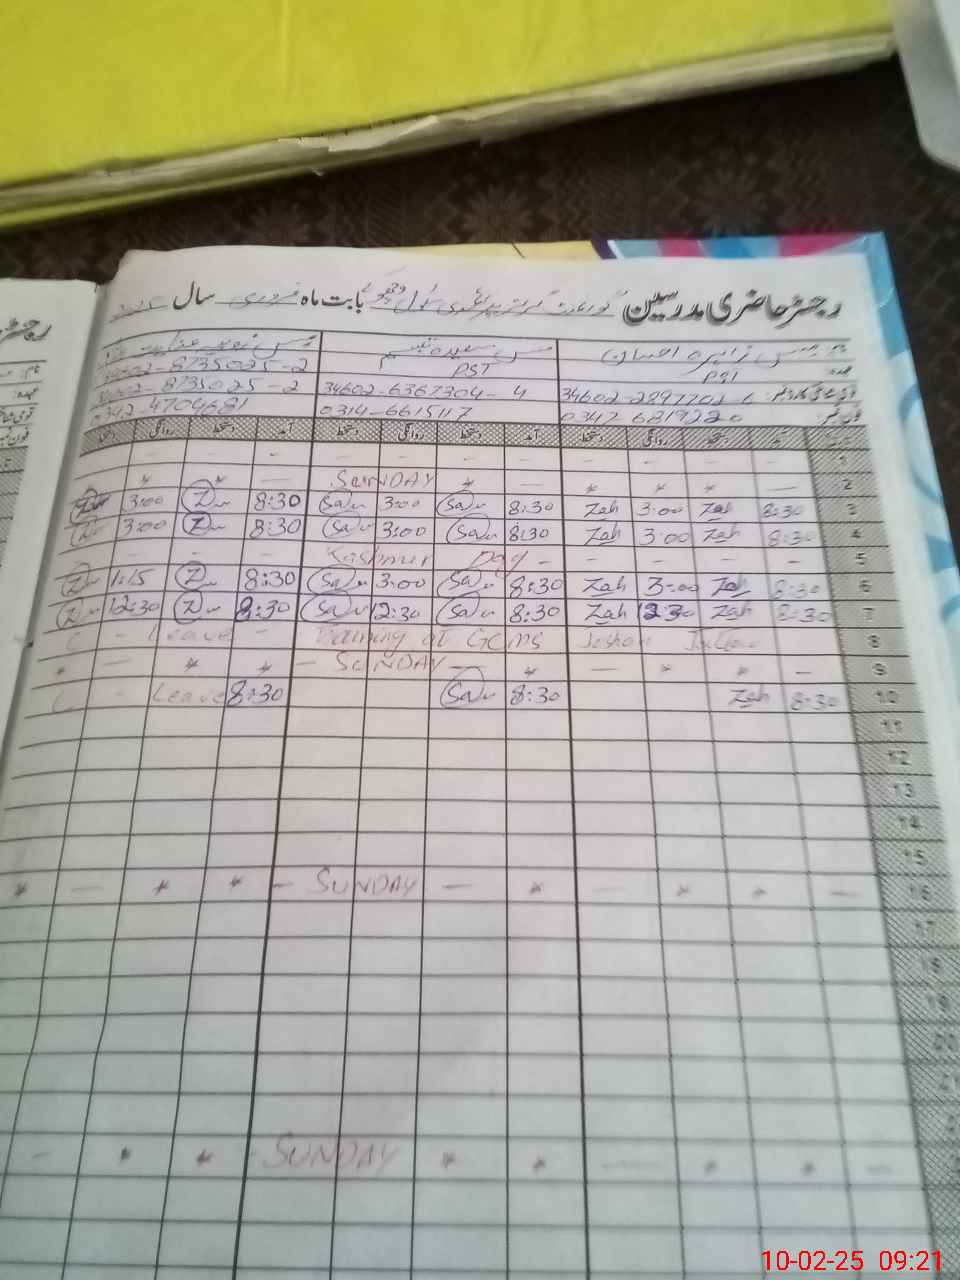 رجسٹر حاضری مدرسین گورنمنٹ گرلز پرائمری سکول بابت ماہ فروری سال
نام: مس زاہرہ احسان مس سعیدہ نسیم مس
عہدہ: PST PST
34602-2897702-6 34602-6367304-4 34602-8735025-2
34602-8735025-2
فون نمبر 0347 6819220 0314-6615117 0342-4704681
آمد دستخط روانگی دستخط آمد دستخط روانگی دستخط آمد دستخط روانگی دستخط
1 - - - - - - - - -
2 - * * * SUNDAY * - - * *
3 8:30 Zah 3:00 Zah 8:30 Sa 3:00 Sa 8:30 Z 3:00 Z
4 8:30 Zah 3:00 Zah 8:30 Sa 3:00 Sa 8:30 Z 3:00 Z
5 - - - Kashmir Day - - - -
6 8:30 Zah 3:00 Zah 8:30 Sa 3:00 Sa 8:30 Z 1:15 Z
7 8:30 Zah 12:30 Zah 8:30 Sa 12:30 Sa 8:30 Z 12:30 Z
8 Training at GCMS - Leave -
9 - * * - * - SUNDAY - * * - *
10 8:30 Zah 8:30 Sa 8:30 Leave - L
11
12
13
14
15
16 - * * - * - SUNDAY - * * - *
17
18
19
20
21
- * * - * SUNDAY * * -
10-02-25 09:21